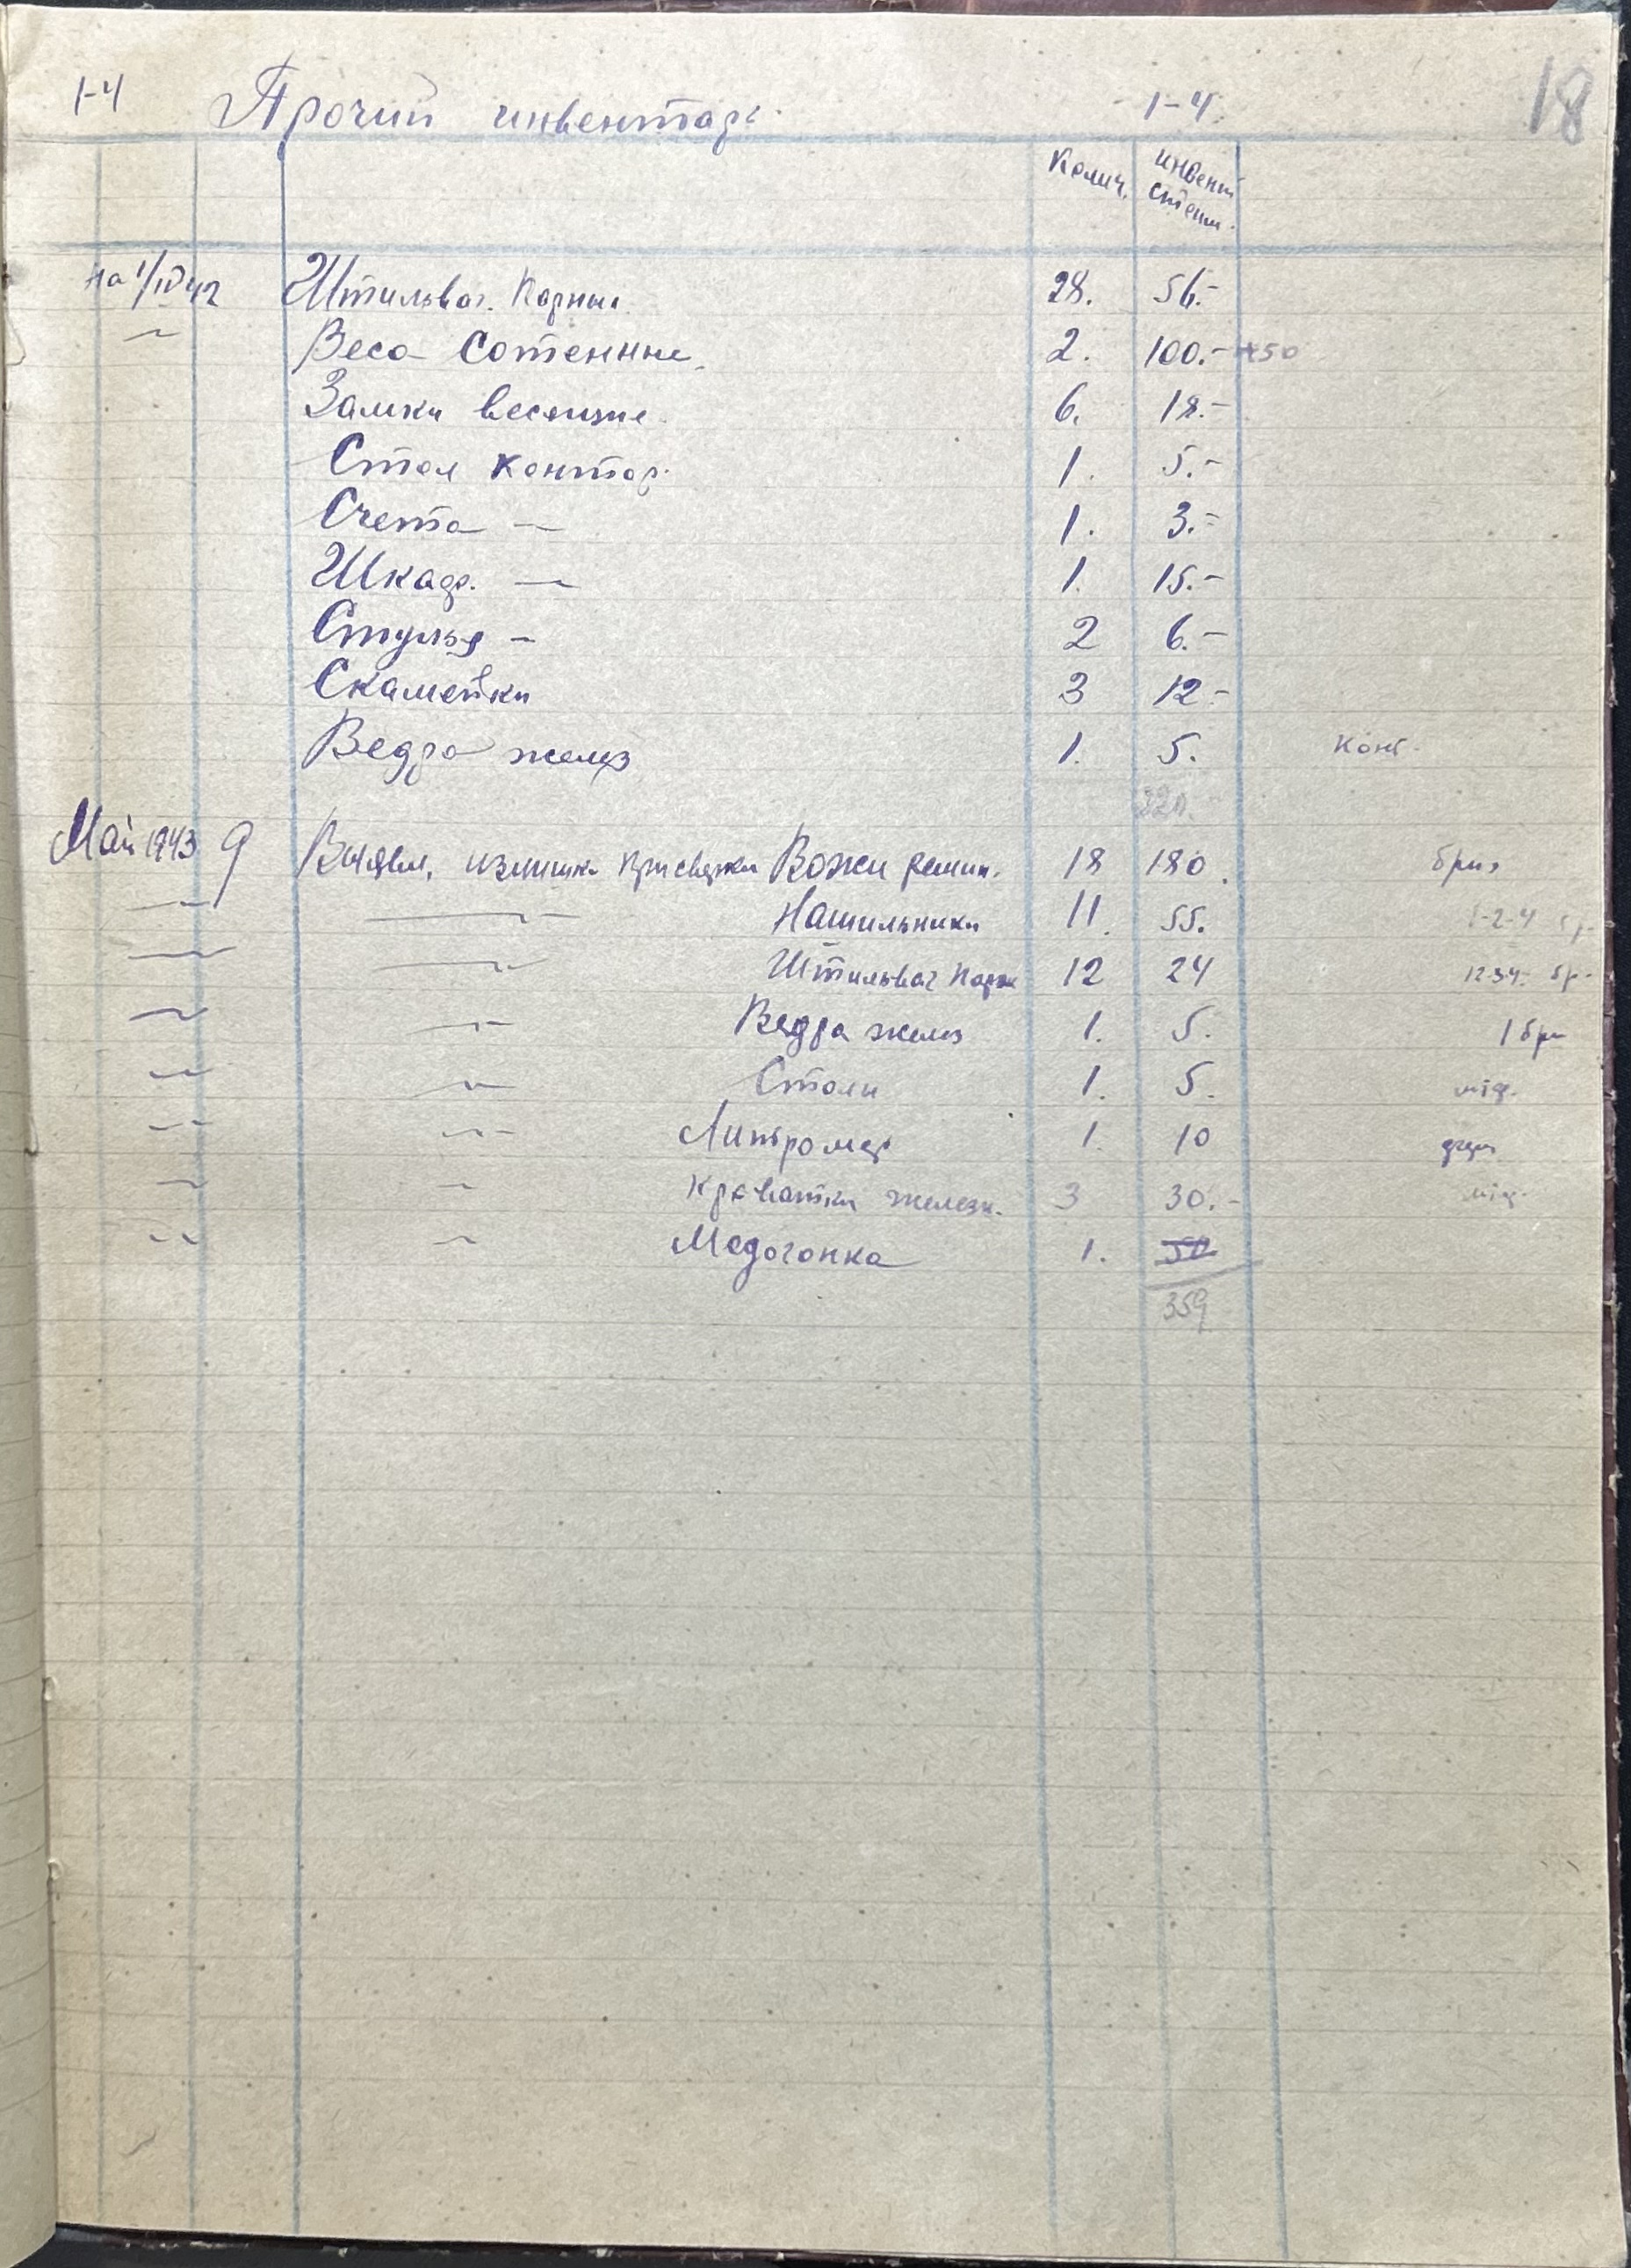 1-4 Прочий инвентарь 1-4 18
Колич. инвент стоим.
на 1/IV 42 Штильваг. Парные 28. 56.-
〃 Веса Сотенные 2. 100.- +50
Замки весячие 6. 18.-
Стол контор. 1. 5.-
Счета — 1. 3.-
Шкаф. — 1. 15.-
Стулья — 2 6.-
Скамейки 3 12-
Ведра желез 1. 5. Конт.
320.
Май 1943 9 Выявл. излишки при сверки Вожи ремин. 18 180.
〃 — Нашильники 11. 55. 1-2-4 бр.
〃 — Штильваг Парн 12 24 1234 бр-
〃 〃 Ведра желез 1. 5. 1 бр
〃 〃 Столы 1. 5.
〃 〃 Литромер 1. 10
〃 〃 Кроватки железн. 3 30.-
〃 〃 Медогонка 1. 50
359